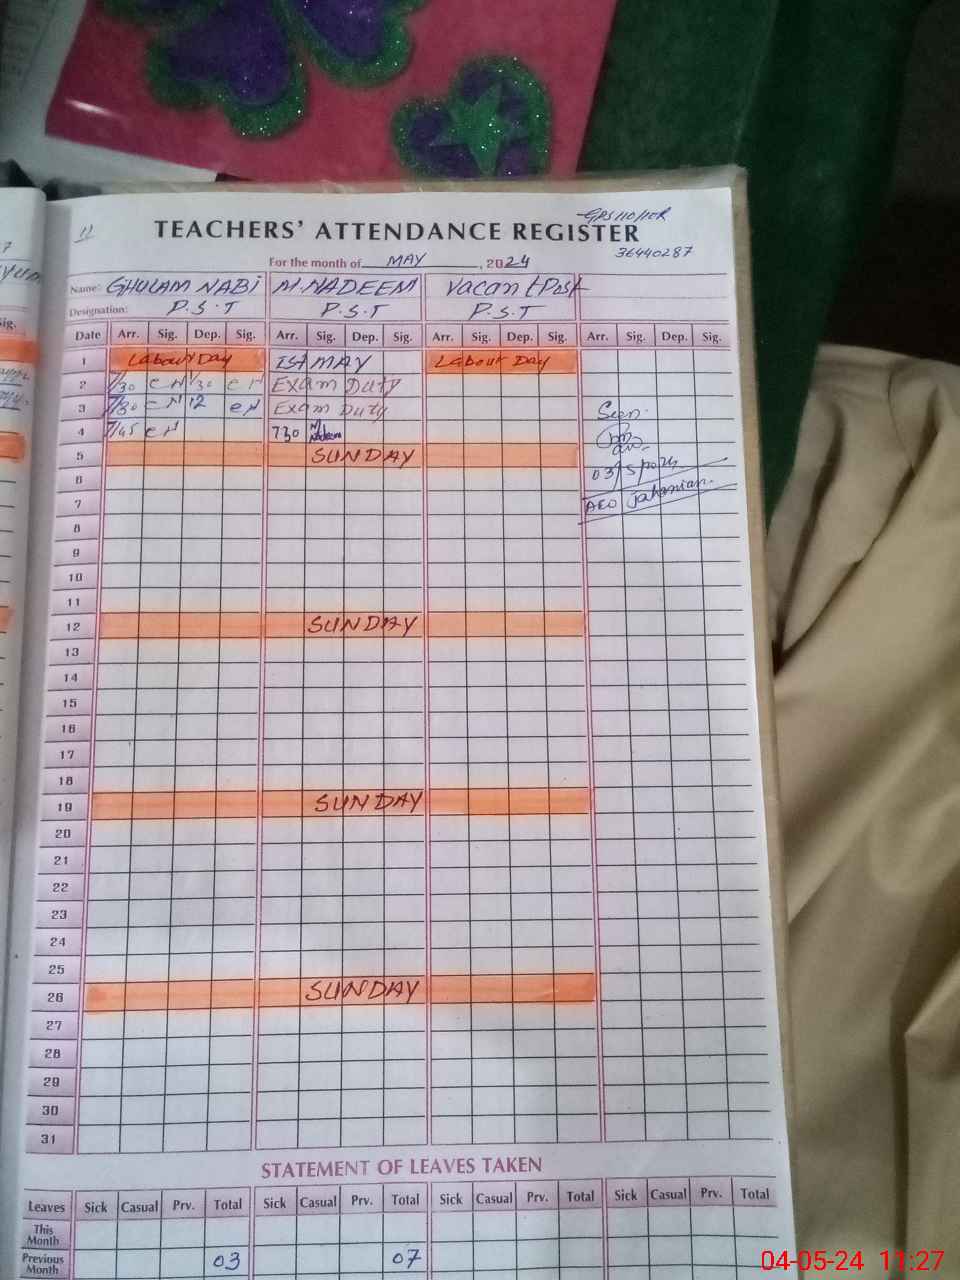 11
GPS 110/10R
TEACHERS' ATTENDANCE REGISTER
36440287
For the month of MAY, 2024
Name: GHULAM NABI M.NADEEM Vacant Post
Designation: P.S.T P.S.T P.S.T
Date Arr. Sig. Dep. Sig. Arr. Sig. Dep. Sig. Arr. Sig. Dep. Sig. Arr. Sig. Dep. Sig.
1 Labour Day IST MAY Labour Day
2 7/30 1/30 Exam Duty
3 7/30 12 Exam Duty Seen.
4 7/45 730 Nadeem
5 SUNDAY
6 03/5
7 AEO Jahanian.
8
9
10
11
12 SUNDAY
13
14
15
16
17
18
19 SUNDAY
20
21
22
23
24
25
26 SUNDAY
27
28
29
30
31
STATEMENT OF LEAVES TAKEN
Leaves Sick Casual Prv. Total Sick Casual Prv. Total Sick Casual Prv. Total Sick Casual Prv. Total
This Month
Previous Month 03 07
04-05-24 11:27